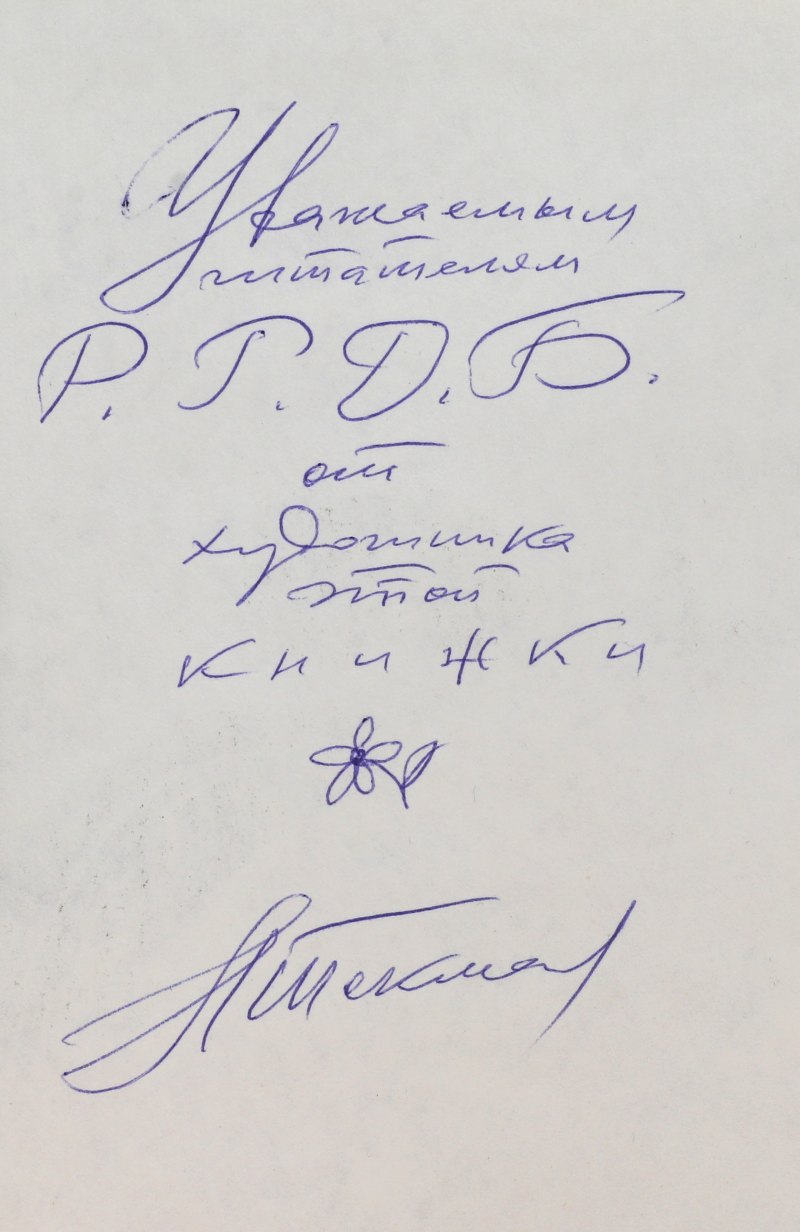 Уважаемым
читателям
Р. Г. Д. Б.
от
художника
этой
книжки